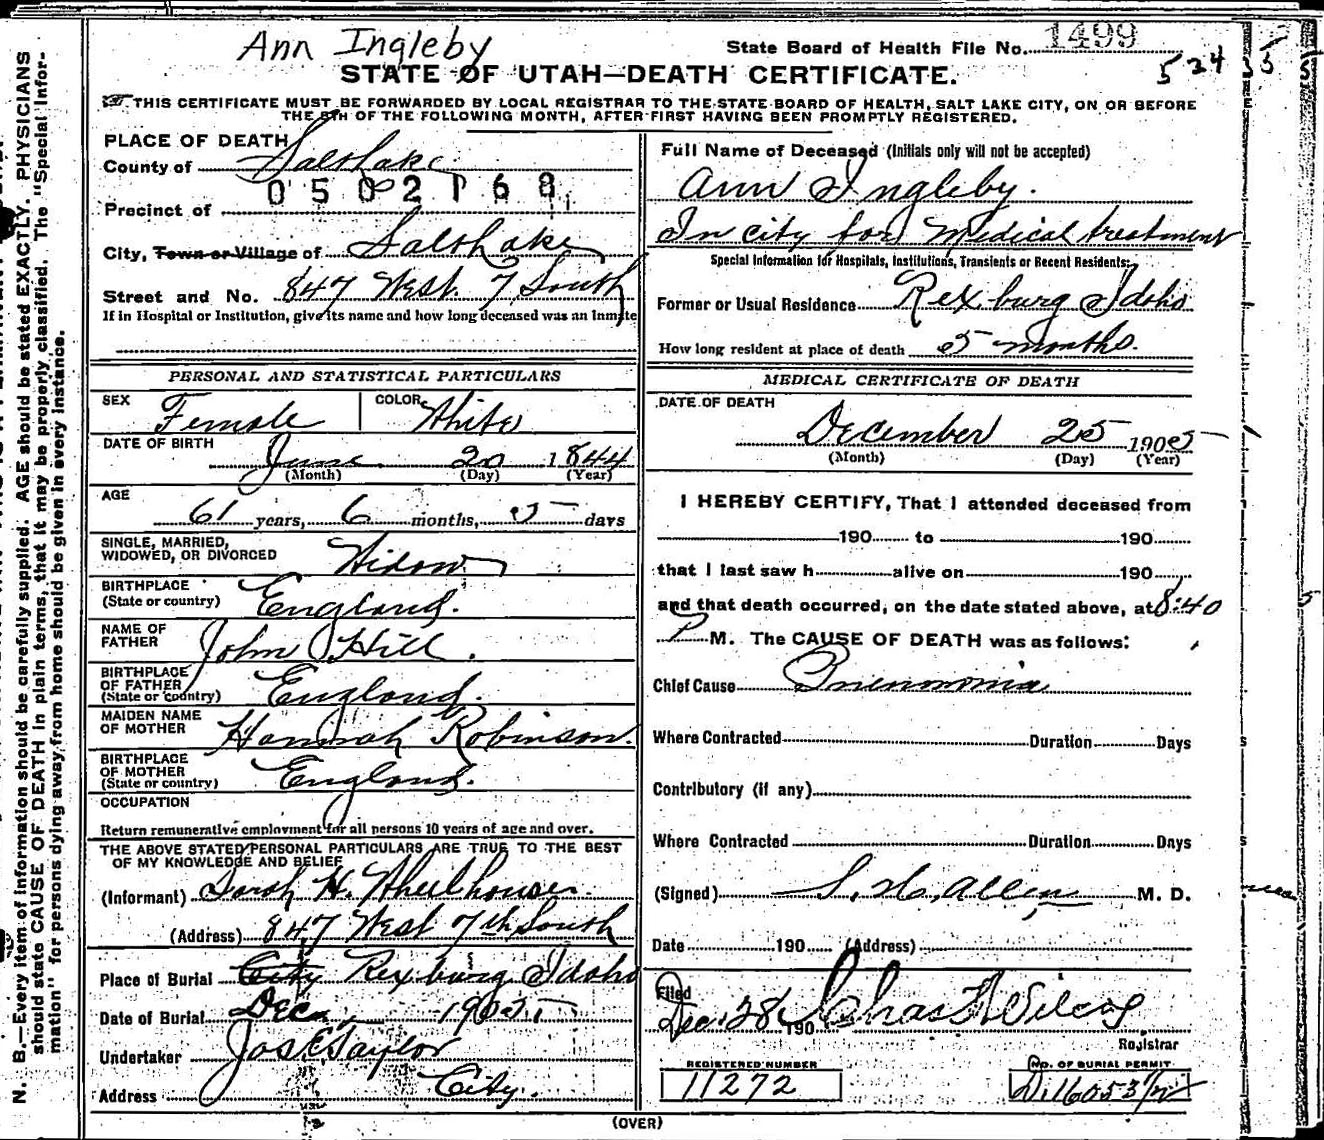 Ann Ingleby
State Board of Health File No. 1499
534
STATE OF UTAH—DEATH CERTIFICATE.
THIS CERTIFICATE MUST BE FORWARDED BY LOCAL REGISTRAR TO THE STATE BOARD OF HEALTH, SALT LAKE CITY, ON OR BEFORE
THE 5TH OF THE FOLLOWING MONTH, AFTER FIRST HAVING BEEN PROMPTLY REGISTERED.
PLACE OF DEATH
County of Salt Lake
0502168
Precinct of
City, Town or Village of Salt Lake
Street and No. 847 West 7 South
If in Hospital or Institution, give its name and how long deceased was an Inmate
PERSONAL AND STATISTICAL PARTICULARS
SEX Female COLOR White
DATE OF BIRTH June 20 1844
(Month) (Day) (Year)
AGE
61 years, 6 months, 5 days
SINGLE, MARRIED,
WIDOWED, OR DIVORCED Widow
BIRTHPLACE
(State or country) England.
NAME OF
FATHER John Hill.
BIRTHPLACE
OF FATHER
(State or country) England.
MAIDEN NAME
OF MOTHER Hannah Robinson.
BIRTHPLACE
OF MOTHER
(State or country) England.
OCCUPATION
Return remunerative employment for all persons 10 years of age and over.
THE ABOVE STATED PERSONAL PARTICULARS ARE TRUE TO THE BEST
OF MY KNOWLEDGE AND BELIEF
(Informant) Sarah H. Wheelhouser
(Address) 847 West 7th South
Place of Burial City Rexburg Idaho
Date of Burial Dec. 1905
Undertaker Jos E Taylor
Address City.
Full Name of Deceased (Initials only will not be accepted)
Ann Ingleby.
In city for Medical treatment
Special Information for Hospitals, Institutions, Transients or Recent Residents:
Former or Usual Residence Rexburg Idaho
How long resident at place of death 5 months.
MEDICAL CERTIFICATE OF DEATH
DATE OF DEATH
December 25 1905
(Month) (Day) (Year)
I HEREBY CERTIFY, That I attended deceased from
190 to 190
that I last saw h alive on 190
and that death occurred, on the date stated above, at 8:40
P M. The CAUSE OF DEATH was as follows:
Chief Cause Pneumonia
Where Contracted Duration Days
Contributory (if any)
Where Contracted Duration Days
(Signed) S. H. Allen M. D.
Date 190 (Address)
Filed
Dec. 28 190 Chas F Wilcox
Registrar
REGISTERED NUMBER
11272
NO. OF BURIAL PERMIT
D.16053 1/2
(OVER)
N. B.—Every item of information should be carefully supplied. AGE should be stated EXACTLY. PHYSICIANS
should state CAUSE OF DEATH in plain terms, that it may be properly classified. The "Special Infor-
mation" for persons dying away from home should be given in every instance.